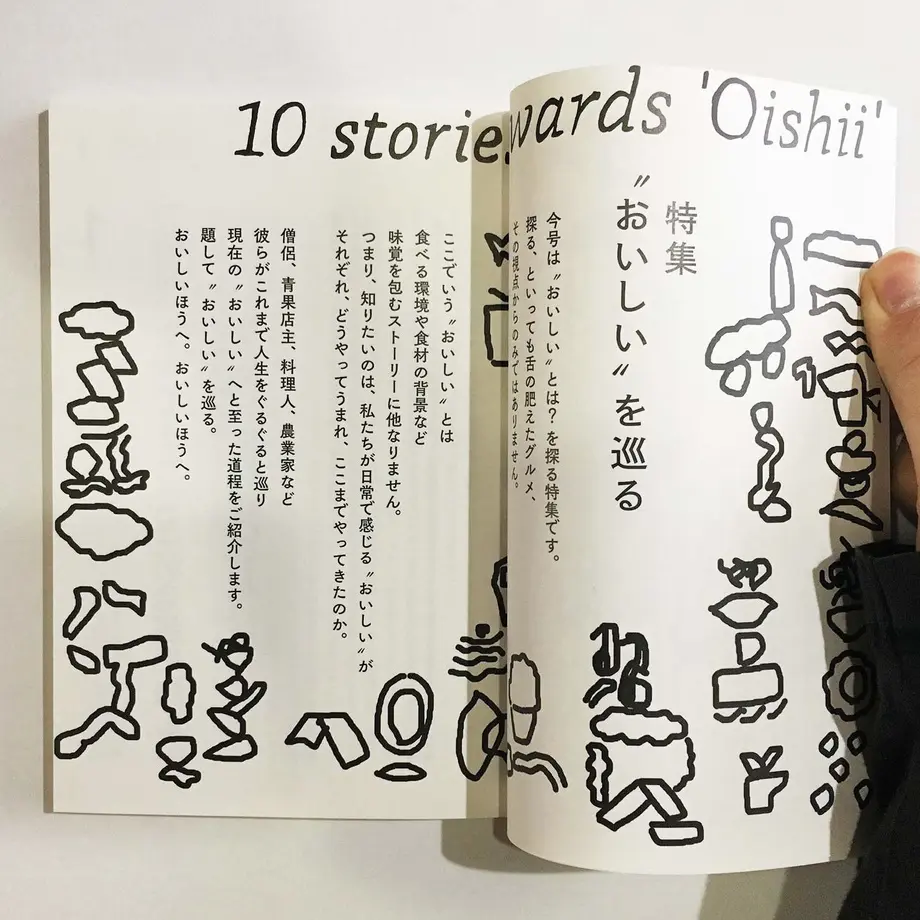 10 stories
wards 'Oishii'
特集
〝おいしい〟を巡る
今号は〝おいしい〟とは？を探る特集です。
探る、といっても舌の肥えたグルメ、
その視点からのみではありません。
ここでいう〝おいしい〟とは
食べる環境や食材の背景など
味覚を包むストーリーに他なりません。
つまり、知りたいのは、私たちが日常で感じる〝おいしい〟が
それぞれ、どうやってうまれ、ここまでやってきたのか。
僧侶、青果店主、料理人、農業家など
彼らがこれまで人生をぐるぐると巡り
現在の〝おいしい〟へと至った道程をご紹介します。
題して〝おいしい〟を巡る。
おいしいほうへ。おいしいほうへ。